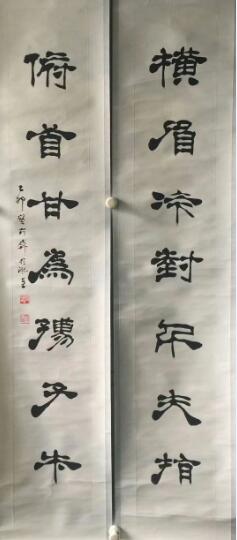 橫眉冷對千夫指
俯首甘為孺子牛
乙卯